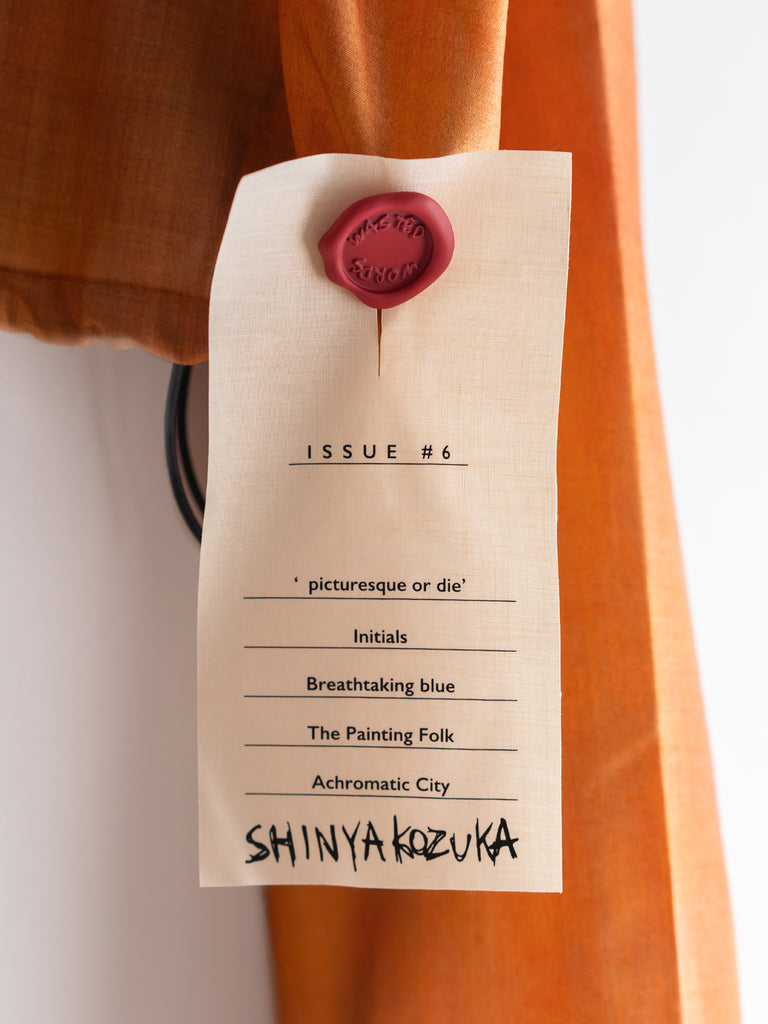 WASTED
WORDS
ISSUE #6
‘ picturesque or die’
Initials
Breathtaking blue
The Painting Folk
Achromatic City
SHINYAKOZUKA